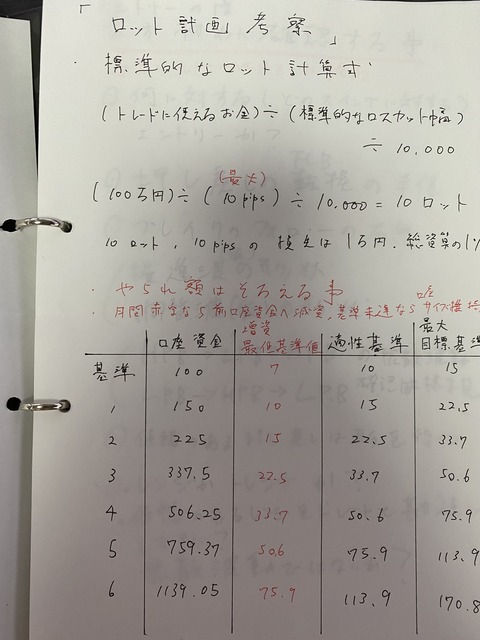 「ロット計画 考察」
・標準的なロット計算式・
(トレードに使えるお金) ÷ (標準的なロスカット幅)
÷ 10,000
(最大)
(100万円) ÷ (10pips) ÷ 10,000 = 10ロット
10ロット、10pipsの損失は1万円、総資算の1%
・やられ額はそろえる事
・月間赤字なら前口座資金へ減資、基準未達なら口座サイズ維持
口座資金 増資最低基準値 適性基準 最大目標基準
基準 100 7 10 15
1 150 10 15 22.5
2 225 15 22.5 33.7
3 337.5 22.5 33.7 50.6
4 506.25 33.7 50.6 75.9
5 759.37 50.6 75.9 113.9
6 1139.05 75.9 113.9 170.8